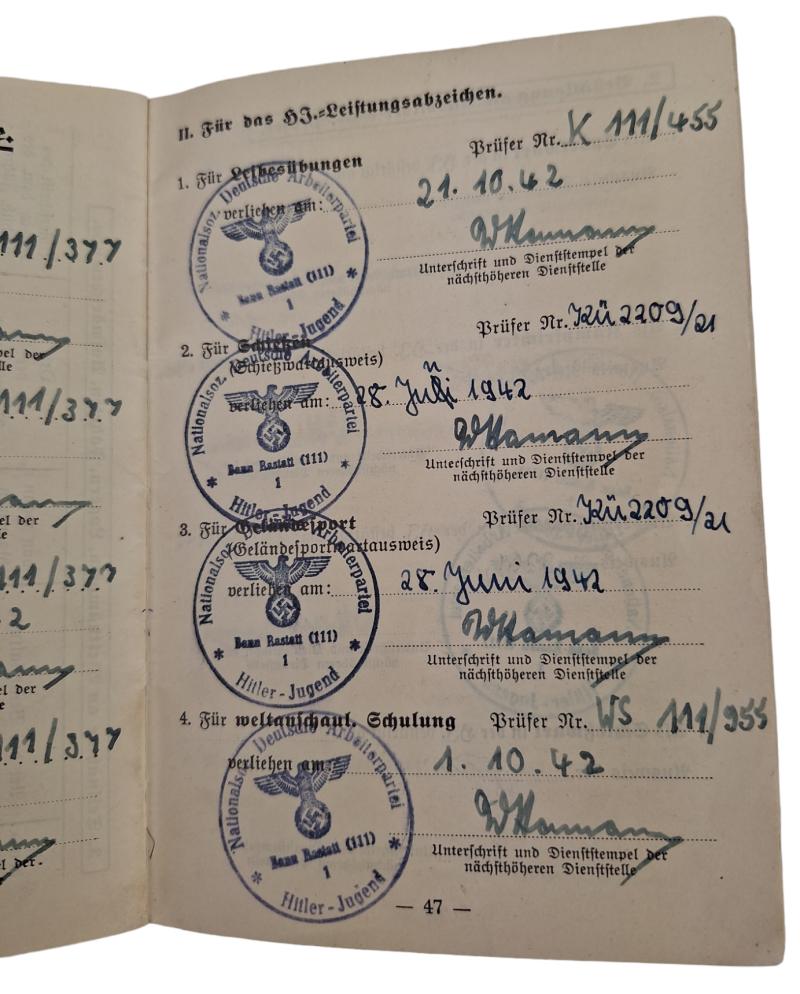 111/377
el der
lle
111/377
el der
e
111/377
2
el der
e
111/377
l der
II. Für das HJ.-Leistungsabzeichen.
Prüfer Nr. K 111/455
1. Für Leibesübungen
verliehen am: 21. 10. 42
Unterschrift und Dienststempel der
nächsthöheren Dienststelle
Nationalsoz. Deutsche Arbeiterpartei
Bann Rastatt (111)
1
* Hitler-Jugend *
Prüfer Nr. Kü 2209/21
2. Für Schießen
(Schießwartausweis)
verliehen am: 28. Juni 1942
WHamann
Unterschrift und Dienststempel der
nächsthöheren Dienststelle
Nationalsoz. Deutsche Arbeiterpartei
Bann Rastatt (111)
1
* Hitler-Jugend *
3. Für Geländesport Prüfer Nr. Kü 2209/21
(Geländesportwartausweis)
verliehen am: 28. Juni 1942
WHamann
Unterschrift und Dienststempel der
nächsthöheren Dienststelle
Nationalsoz. Deutsche Arbeiterpartei
Bann Rastatt (111)
1
* Hitler-Jugend *
4. Für weltanschaul. Schulung Prüfer Nr. WS 111/955
verliehen am: 1. 10. 42
WHamann
Unterschrift und Dienststempel der
nächsthöheren Dienststelle
Nationalsoz. Deutsche Arbeiterpartei
Bann Rastatt (111)
1
* Hitler-Jugend *
— 47 —